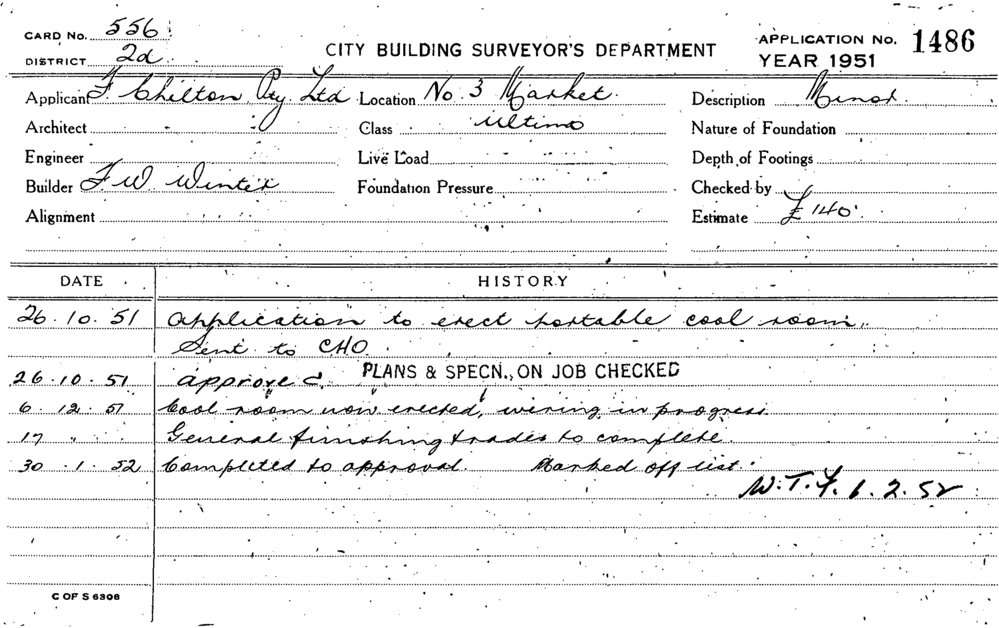 CARD No. 556
DISTRICT 2d
CITY BUILDING SURVEYOR'S DEPARTMENT
APPLICATION No. 1486
YEAR 1951
Applicant F Chilton Pty Ltd
Location No 3 Market
Description Minor
Architect
Class Ultimo
Nature of Foundation
Engineer
Live Load
Depth of Footings
Builder F W Winter
Foundation Pressure
Checked by
Alignment
Estimate £140
DATE HISTORY
26.10.51 Application to erect portable cool room,
Sent to CHO
26.10.51 approved PLANS & SPECN., ON JOB CHECKED
6 12 51 Cool room now erected, wiring in progress
17 " " General finishing trades to complete
30.1.52 Completed to approval. Marked off list.
W.T.F. 6.2.52
C OF S 6308